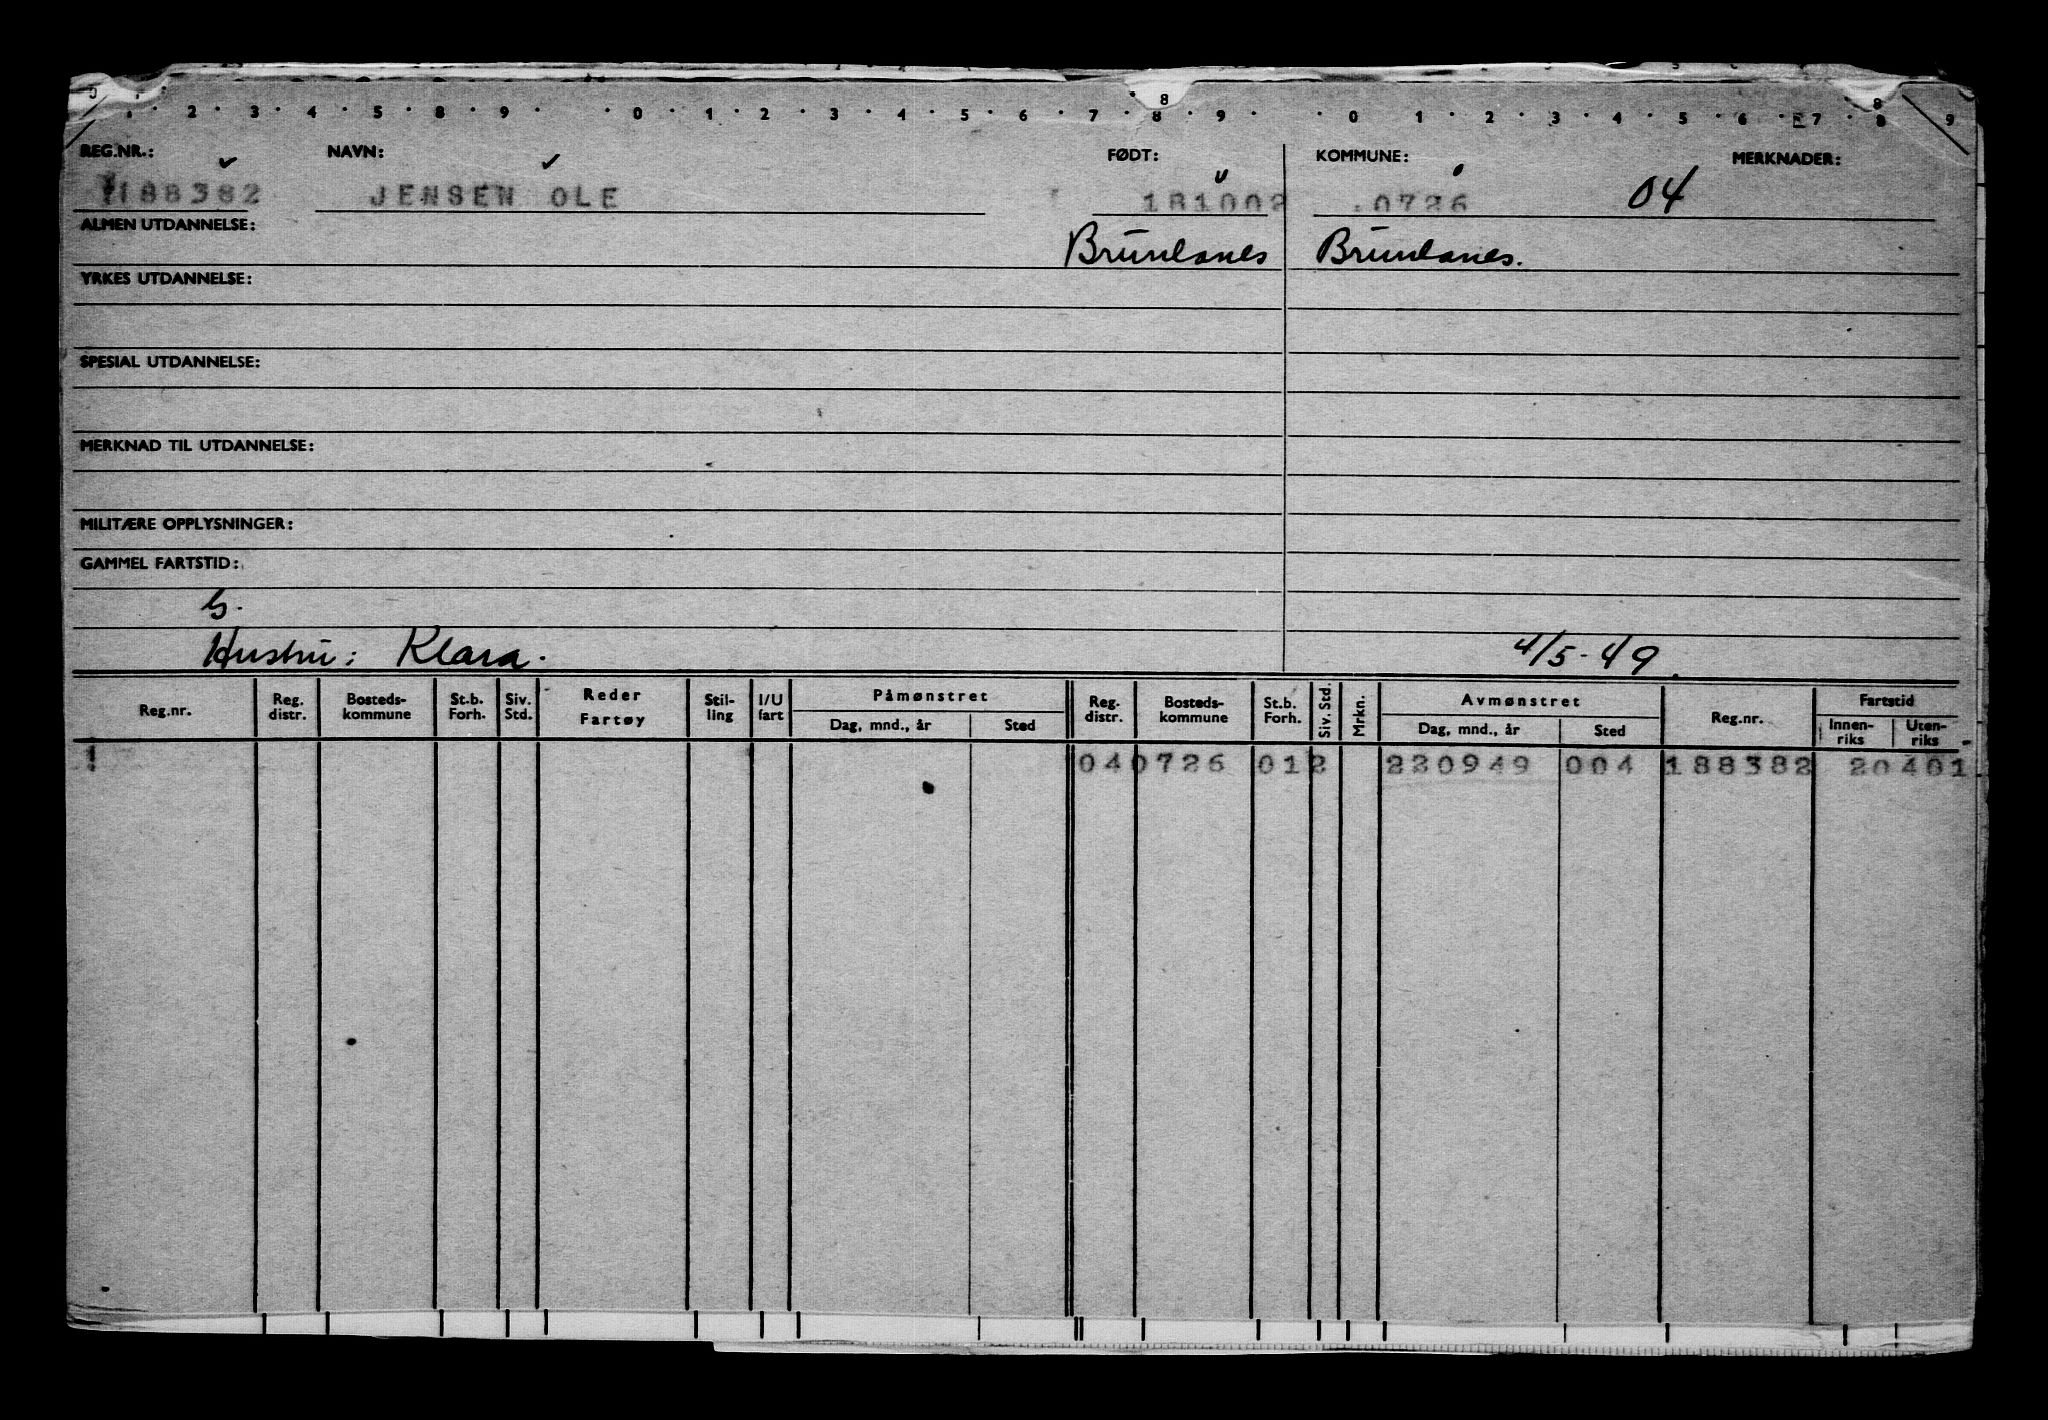 0 1 2 3 4 5 8 9 0 1 2 3 4 5 6 7 8 9 0 1 2 3 4 5 6 7 8 9
REG.NR.: NAVN: FØDT: KOMMUNE: MERKNADER:
188382 JENSEN OLE 181002 0726 04
ALMEN UTDANNELSE: Brunlanes Brunlanes.
YRKES UTDANNELSE:
SPESIAL UTDANNELSE:
MERKNAD TIL UTDANNELSE:
MILITÆRE OPPLYSNINGER:
GAMMEL FARTSTID:
G.
Hustru: Klara. 4/5-49.
Reg.nr. Reg. distr. Bosteds-kommune St.b. Forh. Siv. Std. Reder Fartøy Stil-ling I/U fart Påmønstret Dag, mnd., år Sted Reg. distr. Bosteds-kommune St.b. Forh. Siv. Std. Mrkn. Avmønstret Dag, mnd., år Sted Reg.nr. Fartstid Innen-riks Uten-riks
040726 012 220949 004 188382 20401